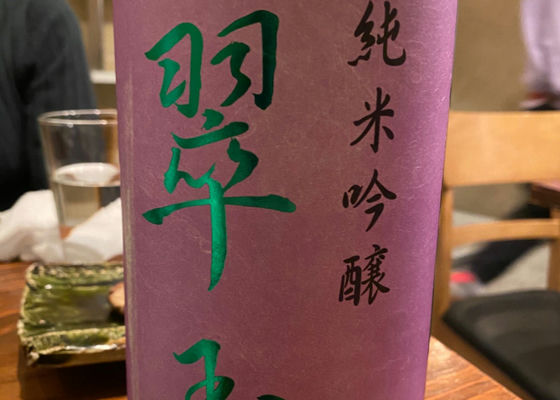 純米吟醸
翠玉